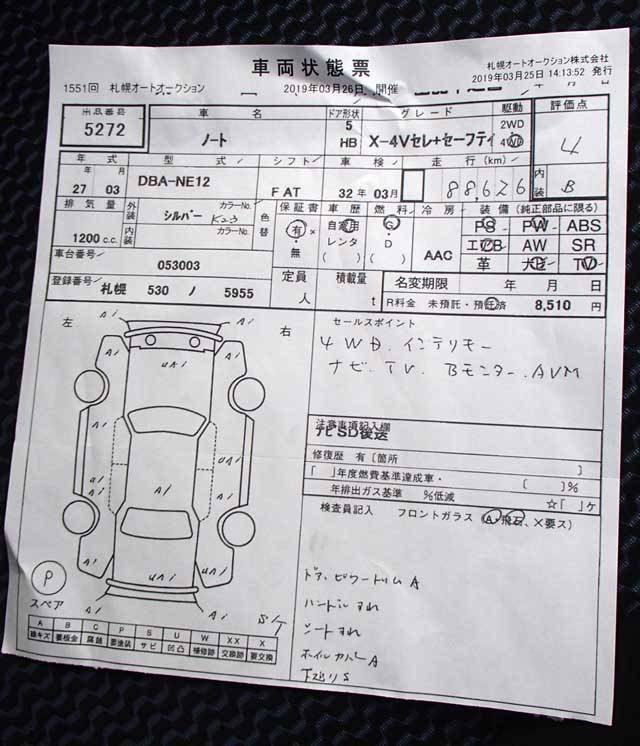 車両状態票
札幌オートオークション株式会社
2019年03月25日 14:13:52 発行
1551回 札幌オートオークション 2019年03月26日 開催
出品番号 車名 ドア形状 グレード 駆動 評価点
5272 ノート 5 HB X-4Vセレ+セーフティ 2WD 4WD 4
年式 型式 シフト 車検 走行(km) 内装
27年03 DBA-NE12 F AT 32年03月 88,626 B
排気量 外装 カラーNo. 色替 保証書 車歴 燃料 冷房 装備(純正部品に限る)
1200c.c. シルバー K23 有 × 自家用 G AAC PS PW ABS
内装 カラーNo. ・無 レンタ ・D エアB AW SR
( ) ( ) 革 ナビ TV
車台番号 053003 定員 人 積載量 t 名変期限 年 月 日
登録番号 札幌 530 ノ 5955 R料金 未預託・預託済 8,510円
左 右
セールスポイント
4WD. インテリキー
ナビ. TV. Bモニター. AVM
注意事項記入欄
ナビSD後送
修復歴 有〔箇所 〕
「 」年度燃費基準達成車・ 〔 〕%
年排出ガス基準 %低減 ☆「 」ケ
検査員記入 フロントガラス (A・飛石、×要ス)
Ai Ai
UAi
Ai Ai
Ai UAi
Ai Ai
Ai
Ai UAi UAi
Ai Ai
P
スペア
Sケ
ドア. ピラートリム A
ハンドルすれ
シートすれ
ホイルカバーA
下廻りS
A B C P S U W XX X
線キズ 要板金 腐蝕 要塗装 サビ 凹凸 補修跡 交換跡 要交換